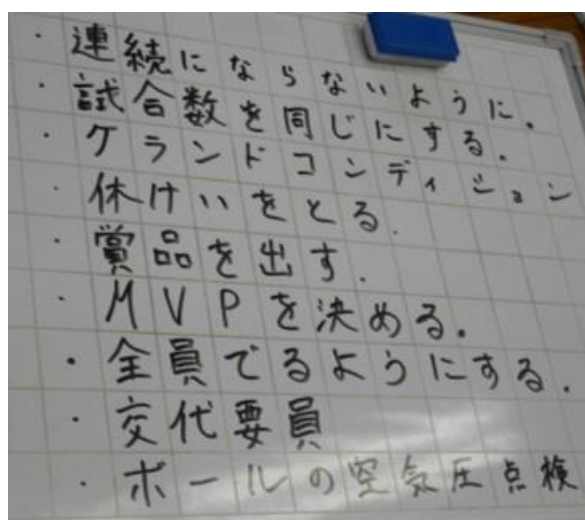 ・連続にならないように.
・試合数を同じにする.
・グランドコンディション
・休けいをとる.
・賞品を出す.
・MVPを決める.
・全員でるようにする.
・交代要員
・ボールの空気圧点検